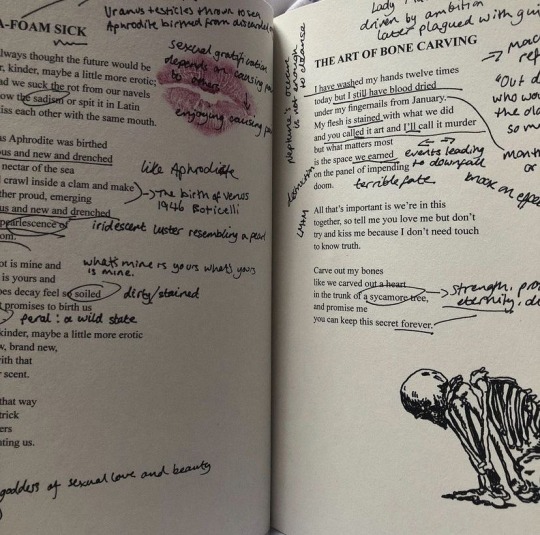 Uranus testicles thrown to sea
Aphrodite birthed from discarded
A-FOAM SICK
always thought the future would be
r, kinder, maybe a little more erotic;
ad we suck the rot from our navels
ow the sadism or spit it in Latin
iss each other with the same mouth.
sexual gratification
depends on causing pain
to others
enjoying causing pa
as Aphrodite was birthed
ous and new and drenched
nectar of the sea
l crawl inside a clam and make
ther proud, emerging
us and new and drenched
pearlescence of
om.
like Aphrodite
The birth of Venus
1946 Boticelli
iridescent luster resembling a pearl
ot is mine and
is yours and
oes decay feel so soiled
promises to birth us
kinder, maybe a little more erotic
w, brand new,
with that
r scent.
what's mine is yours what's yours
is mine.
dirty/stained
feral: a wild state
that way
trick
ers
sting us.
goddess of sexual love and beauty
Lady
driven by ambition
later plagued with gui
THE ART OF BONE CARVING
I have washed my hands twelve times
today but I still have blood dried
under my fingernails from January.
My flesh is stained with what we did
and you called it art and I'll call it murder
but what matters most
is the space we earned
on the panel of impending
doom.
Neptune's ocean
is not enough
to cleanse
events leading
to downfall
terrible fate
"Out d
who wou
the old
so m
month
or
All that's important is we're in this
together, so tell me you love me but don't
try and kiss me because I don't need touch
to know truth.
Carve out my bones
like we carved out a heart
in the trunk of a sycamore tree,
and promise me
you can keep this secret forever.
strength, pro
eternity, di